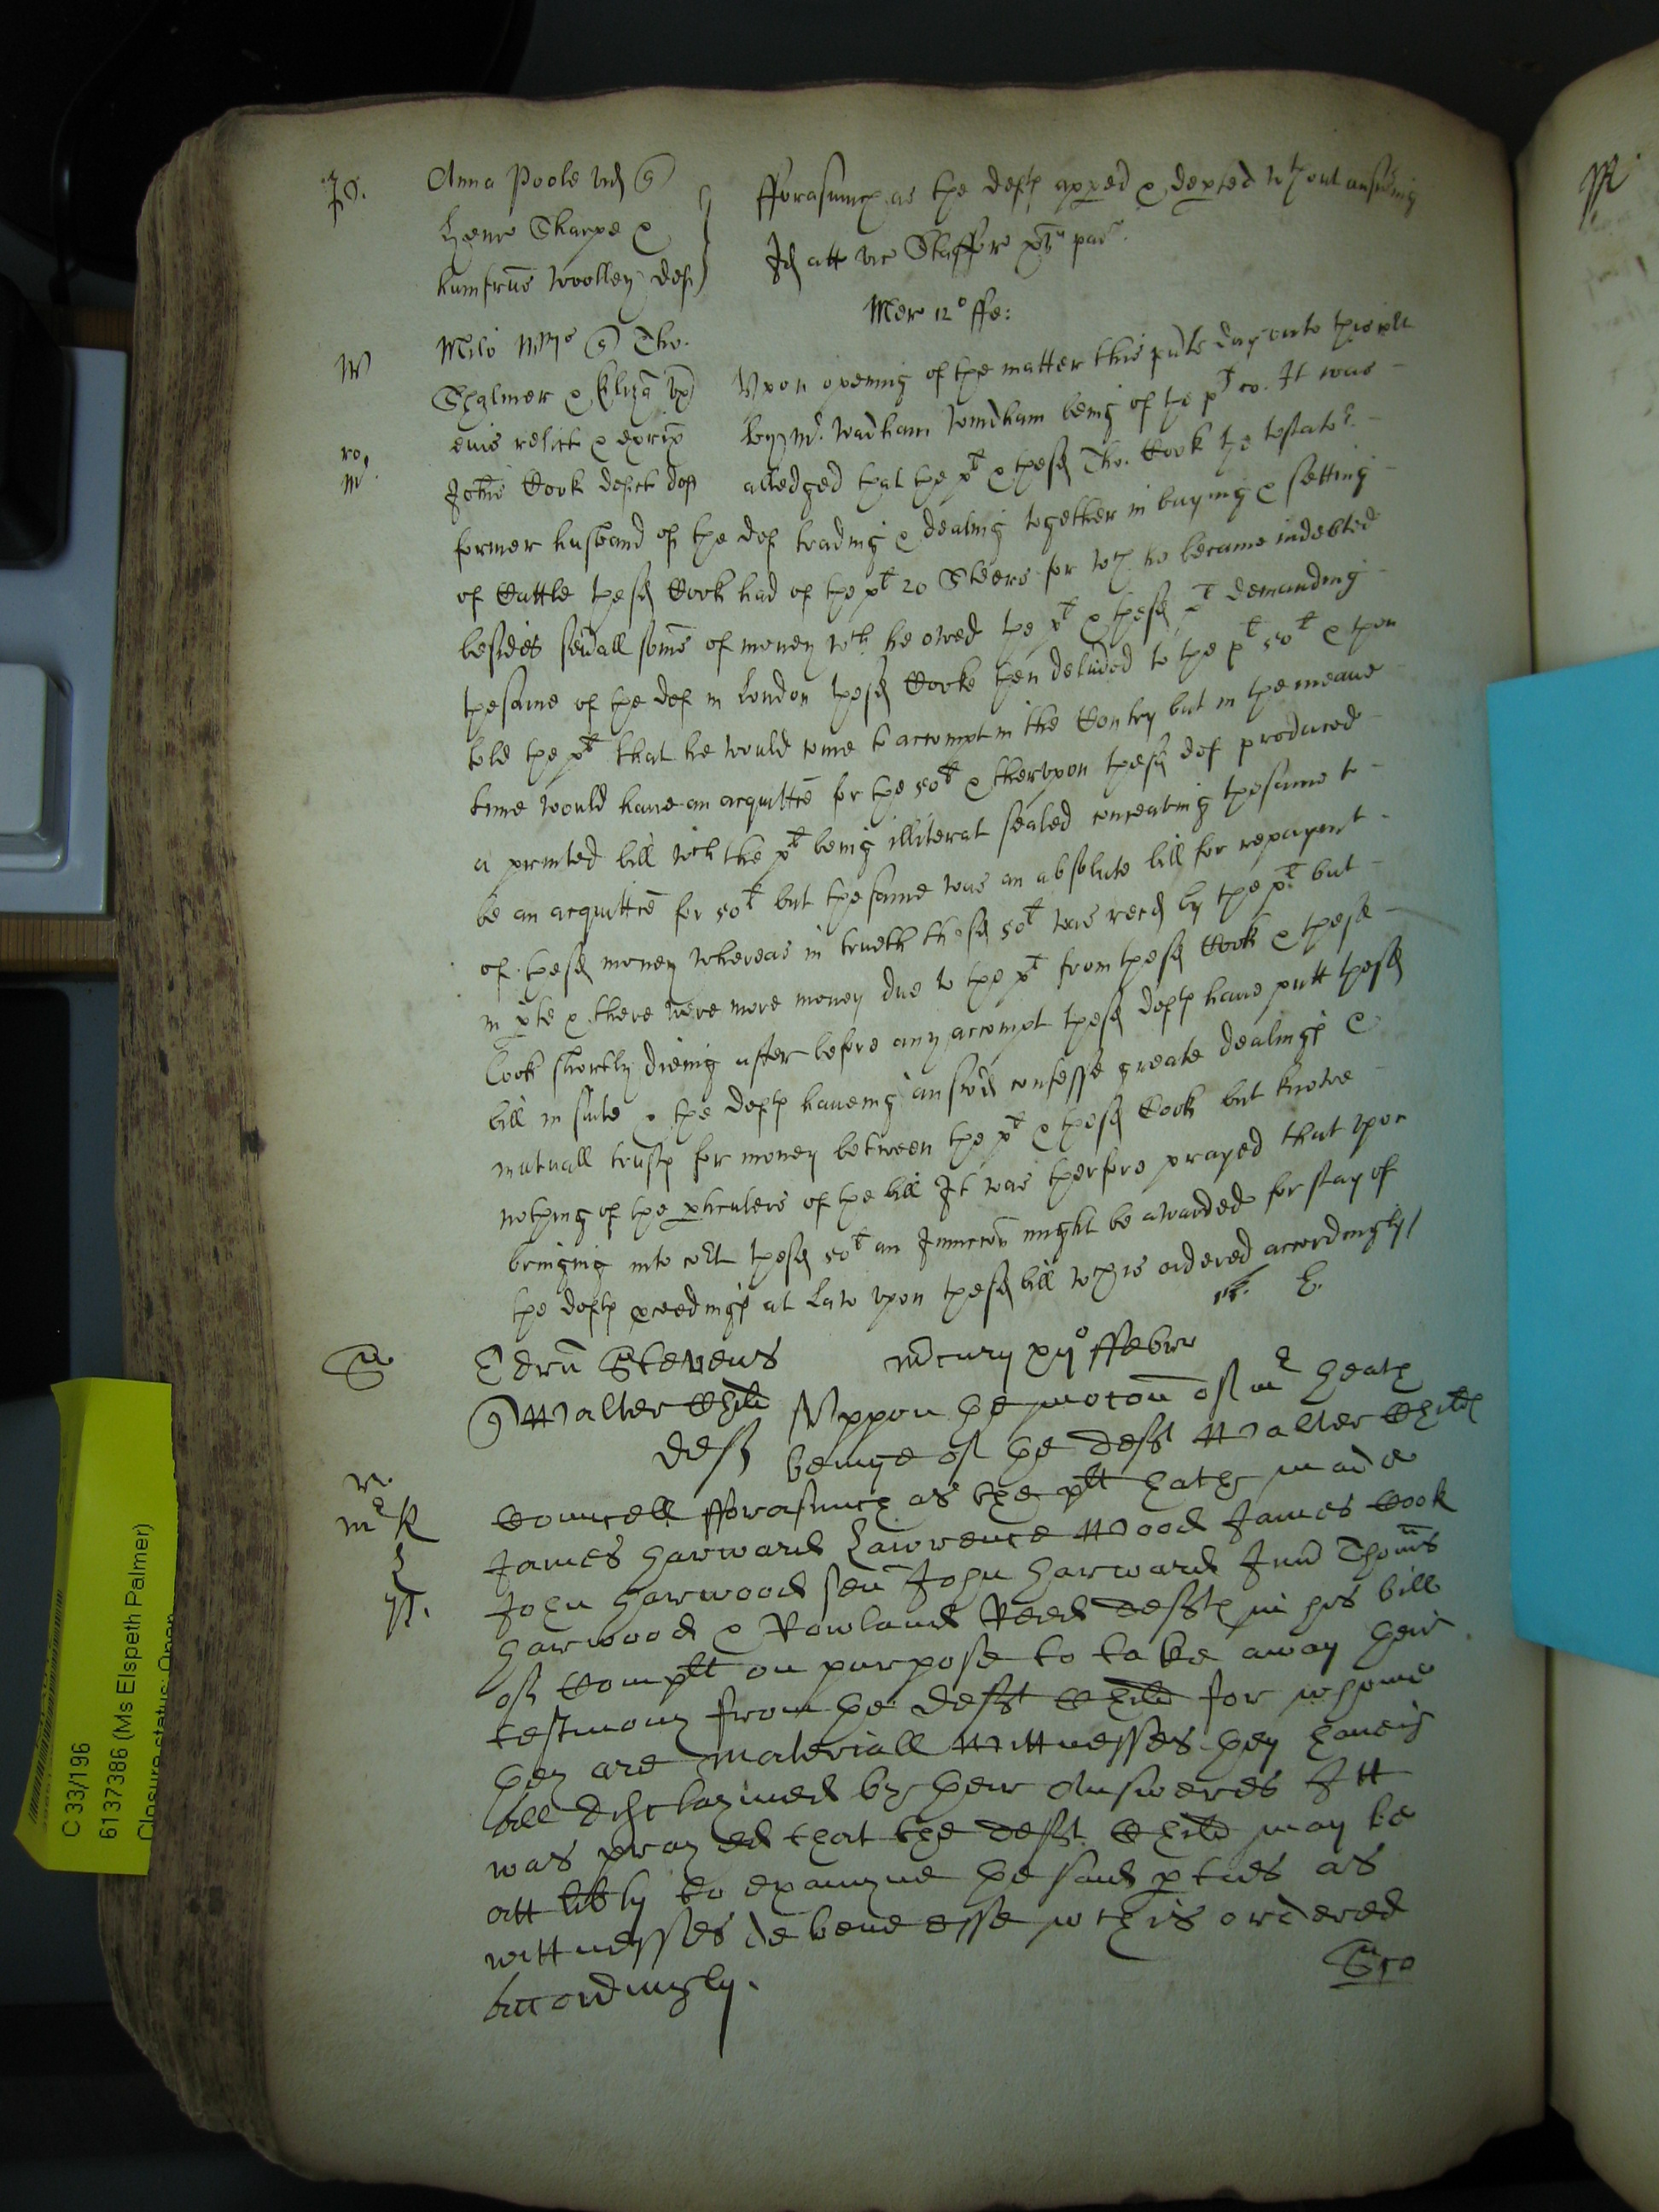 Anna Poole vid
fforasmuch as the defts appeed & depted wthout answering
Henr Sharpe &
Humfrus Woolley def
Id att vic Staffor
Mer 12° ffe:
Milo Tho.
Chalmer & Eliza ux
Upon opening of the matter this pnte day unto this Court
eius relict & execrix
by Mr. Wadham Windham being of the pt co. It was
Johis Cook defct def
alledged that the pt & the sd Tho. Cook the testator
former husband of the def trading & dealing together in buying & selling
of Cattle the sd Cook had of the pt 20 Steers for wch he became indebted
besides seuall somes of money wch he owed the pt & the sd pt demanding
the same of the def in London the sd Cooke then deliued to the pt 50l & then
told the pt that he would come to accompt in the Contry but in the meane
time would haue an acquittce for the 50l & thervpon the sd def produced
a printed bill wch the pt being illiterat sealed conceaving the same to
be an acquittce for 50l but the same was an absolute bill for repayment
of the sd money whereas in trueth the sd 50l was recd by the pt but
in pte & there were more money due to the pt from the sd Cook & the sd
Cook shortly dieing after before any accompt the sd defts haue putt the sd
bill in suite & the defts haueing answd confesse greate dealings &
mutuall trusts for money between the pt & the sd Cook but knowe
nothing of the pticulers of the bill It was therfore prayed that vpon
bringing into Court the sd 50l an Iniunccon might be awarded for stay of
the defts pceedings at Law vpon the sd bill wch is ordered accordingly
Edru Stevens
Mercury xij° ffebr
Walter Child
Vppon the motion of Mr Heath
deft
beinge of the deft Walter Childs
Councell fforasmuch as the plt hath made
James Harward Lawrence Wood James Cook
John Harwood sen John Harward Jun Thoms
Harwood & Rowland Reed defts in his bill
of Complt on purpose to take away their
testimony from the deft Child for whome
they are materiall wittnesses they haueing
all disclaymed by their Answeres Itt
was prayed that the deft Child may be
att libty to examyne the said pties as
wittnesses de bene esse wch is ordered
accordingly.
C 33/196
6137386 (Ms Elspeth Palmer)
Closure status: Open